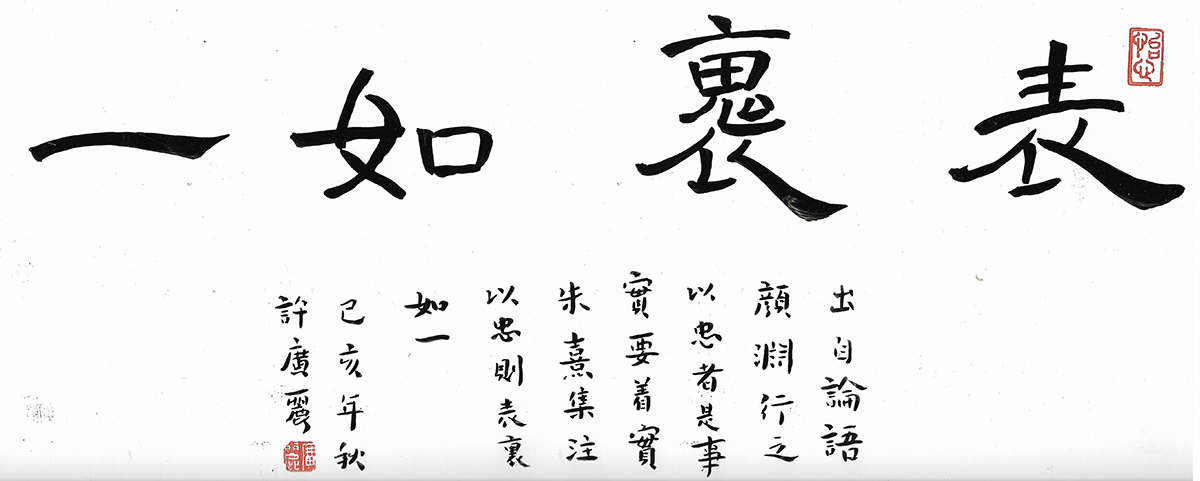 表裏如一
出自論語
顔淵行之
以忠者是事
實要着實
朱熹集注
以忠則表裏
如一
己亥年秋
許廣麗